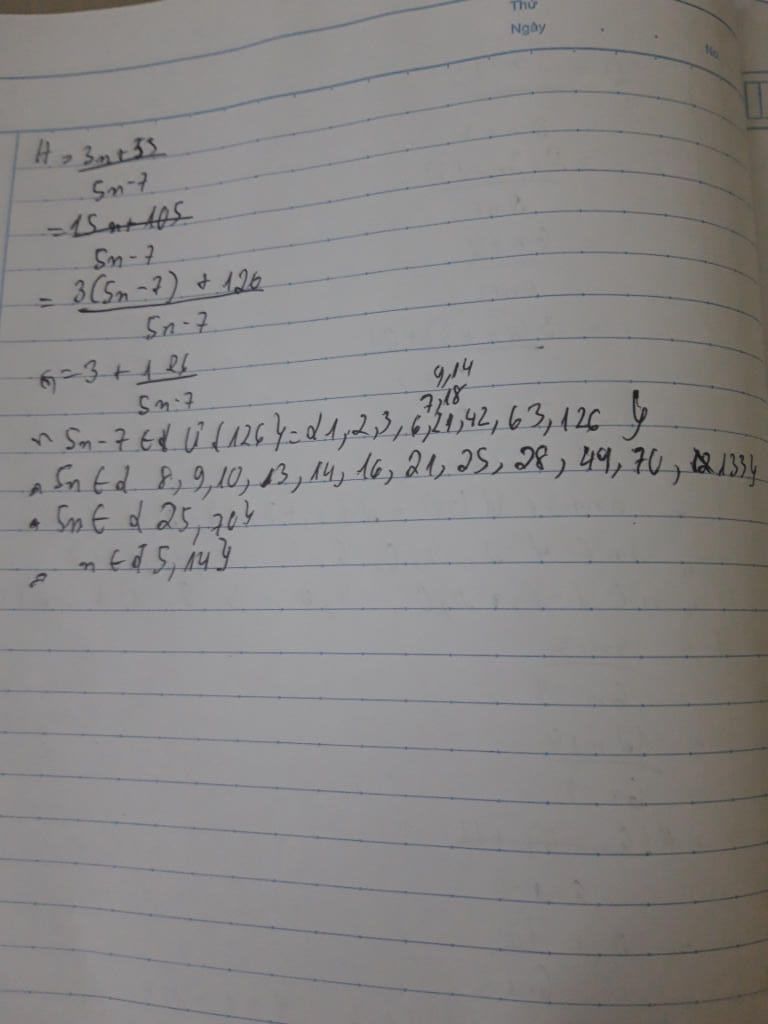 Thứ
Ngày
No
A = 3n+35
5n-7
= 15n+105
5n-7
= 3(5n-7) + 126
5n-7
= 3 + 126
5n-7
9,14
7,18
5n-7 ∈ Ư {126} = {1, 2, 3, 6, 21, 42, 63, 126 }
5n ∈ { 8, 9, 10, 13, 14, 16, 21, 25, 28, 49, 70, 133}
5n ∈ { 25, 70}
n ∈ {5, 14}